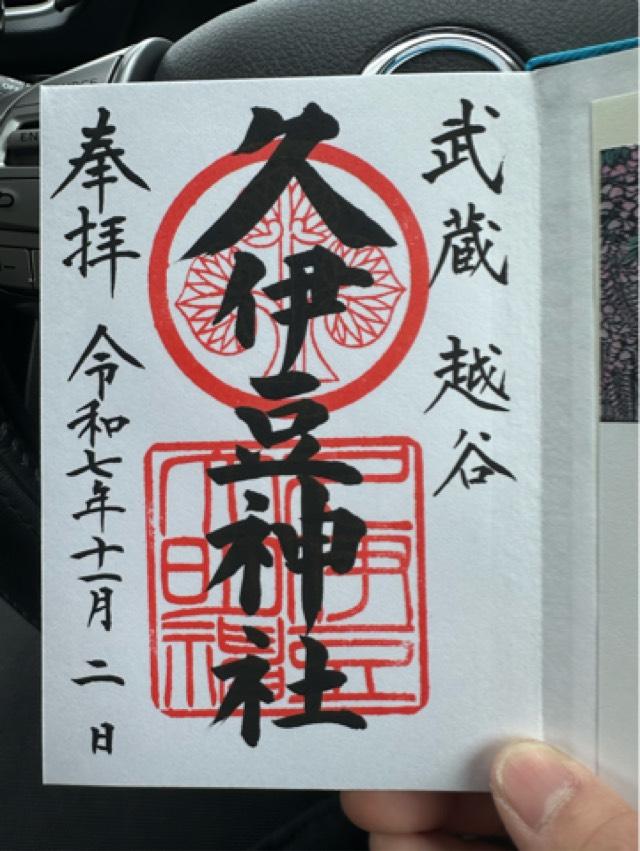 武蔵 越谷
久伊豆神社
奉拝 令和七年十一月二日